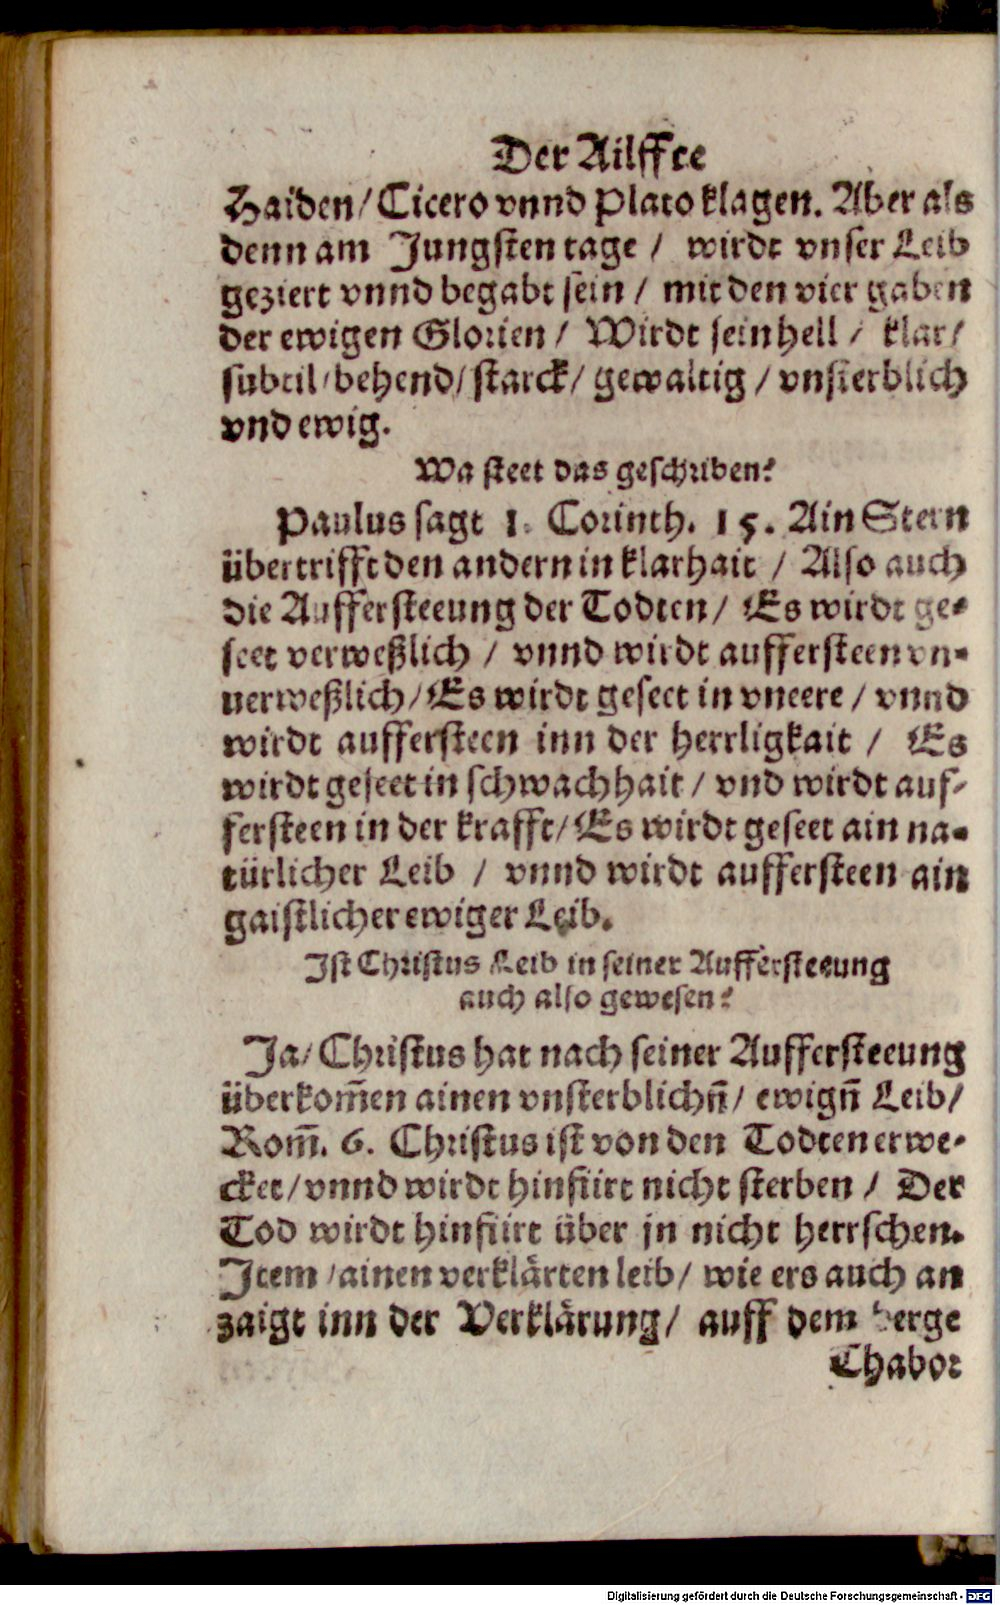 Der Ailffte
Haiden/ Cicero vnnd Plato klagen. Aber als
denn am Jungsten tage / wirdt vnser Leib
geziert vnnd begabt sein / mit den vier gaben
der ewigen Glorien / Wirdt sein hell / klar/
subtil/ behend/ starck/ gewaltig / vnsterblich
vnd ewig.
Wa steet das geschriben?
Paulus sagt 1. Corinth. 15. Ain Stern
übertrifft den andern in klarhait / Also auch
die Auffersteeung der Todten/ Es wirdt ge-
seet verweßlich / vnnd wirdt auffersteen vn-
uerweßlich/ Es wirdt geseet in vneere / vnnd
wirdt auffersteen inn der herrligkait / Es
wirdt geseet in schwachhait / vnd wirdt auf-
fersteen in der krafft/ Es wirdt geseet ain na-
türlicher Leib / vnnd wirdt auffersteen ain
gaistlicher ewiger Leib.
Ist Christus Leib in seiner Auffersteeung
auch also gewesen?
Ja/ Christus hat nach seiner Auffersteeung
überkom̃en ainen vnsterblichñ/ ewigñ Leib/
Rom̃. 6. Christus ist von den Todten erwe-
cket/ vnnd wirdt hinfürt nicht sterben / Der
Tod wirdt hinfürt über jn nicht herrschen.
Item /ainen verklärten leib/ wie ers auch an
zaigt inn der Verklärung/ auff dem berge
Thabor
Digitalisierung gefördert durch die Deutsche Forschungsgemeinschaft - DFG